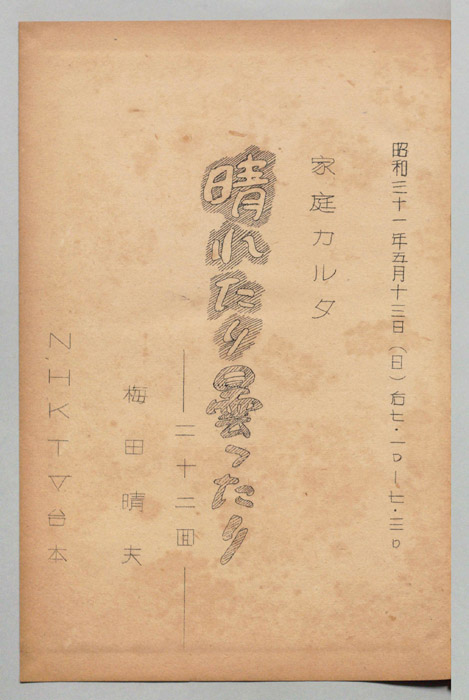 昭和三十一年五月十三日(日)后七・一〇〜七・三〇
家庭カルタ
晴れたり曇ったり
――二十二回――
梅田晴夫
N.H.KTV台本